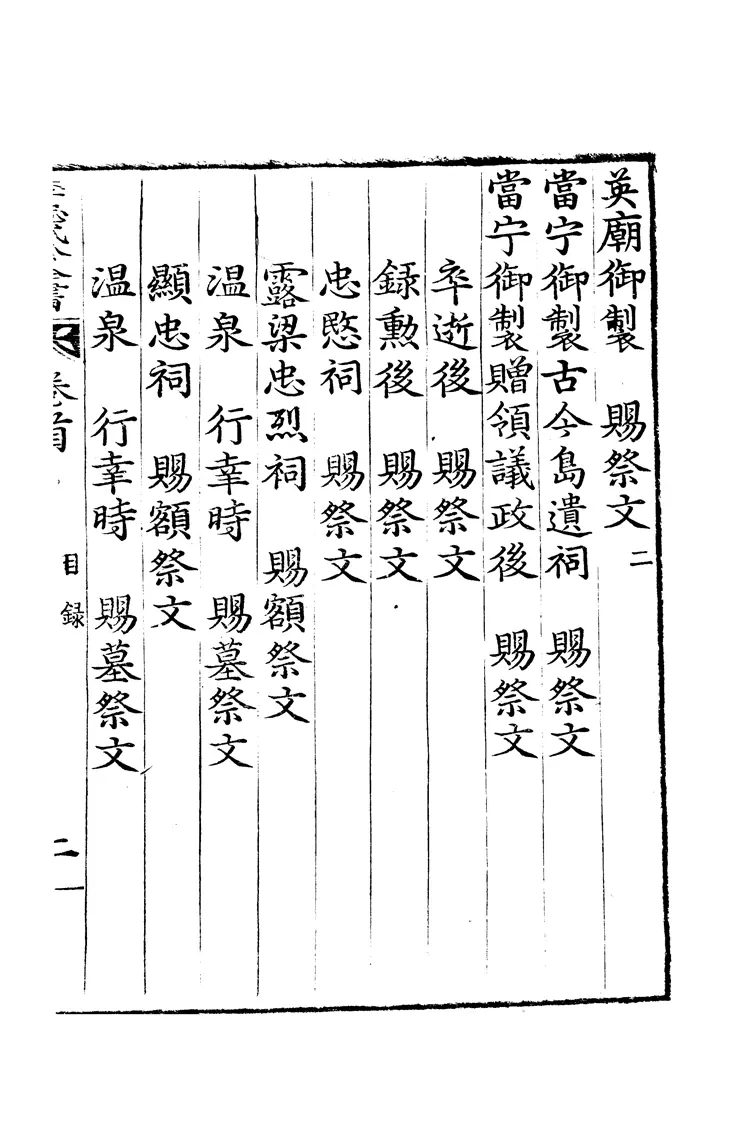 英廟御製　賜祭文二
當宁御製古今島遺祠　賜祭文
當宁御製贈領議政後　賜祭文
卒逝後　賜祭文
録勳後　賜祭文
忠愍祠　賜祭文
露梁忠烈祠　賜額祭文
温泉　行幸時　賜墓祭文
顯忠祠　賜額祭文
温泉　行幸時　賜墓祭文
李忠武公全書　卷首　目録　二